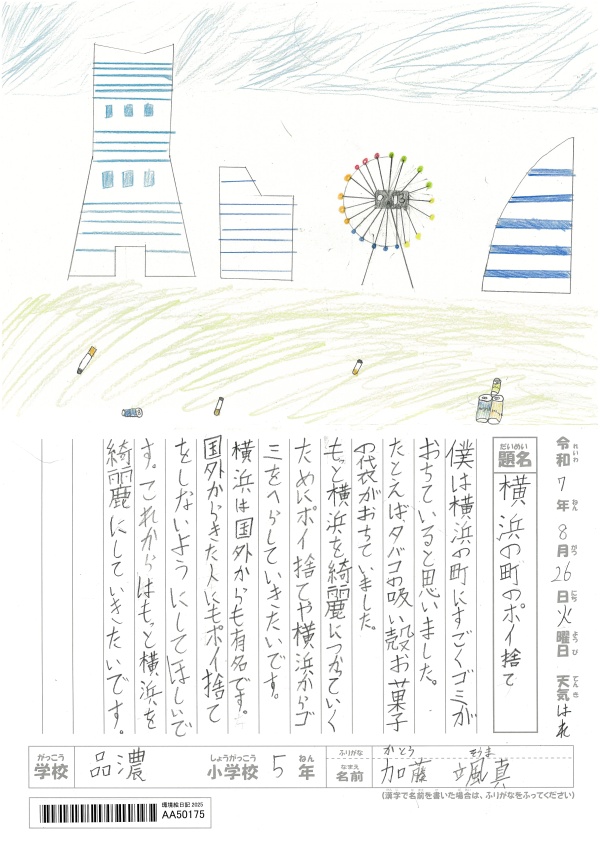 令和 7年 8月 26日 火曜日 天気 はれ
題名 横浜の町のポイ捨て
僕は横浜の町にすごくゴミが
おちていると思いました。
たとえばタバコの吸い殻お菓子
の袋がおちていました。
もっと横浜を綺麗につかっていく
ためにポイ捨てや横浜からゴ
ミをへらしていきたいです。
横浜は国外からも有名です。
国外からきた人にもポイ捨て
をしないようにしてほしいで
す。これからはもっと横浜を
綺麗にしていきたいです。
学校 品濃 小学校 5年
ふりがな かとう そうま
名前 加藤 颯真
(漢字で名前を書いた場合は、ふりがなをふってください)
環境絵日記 2025
AA50175